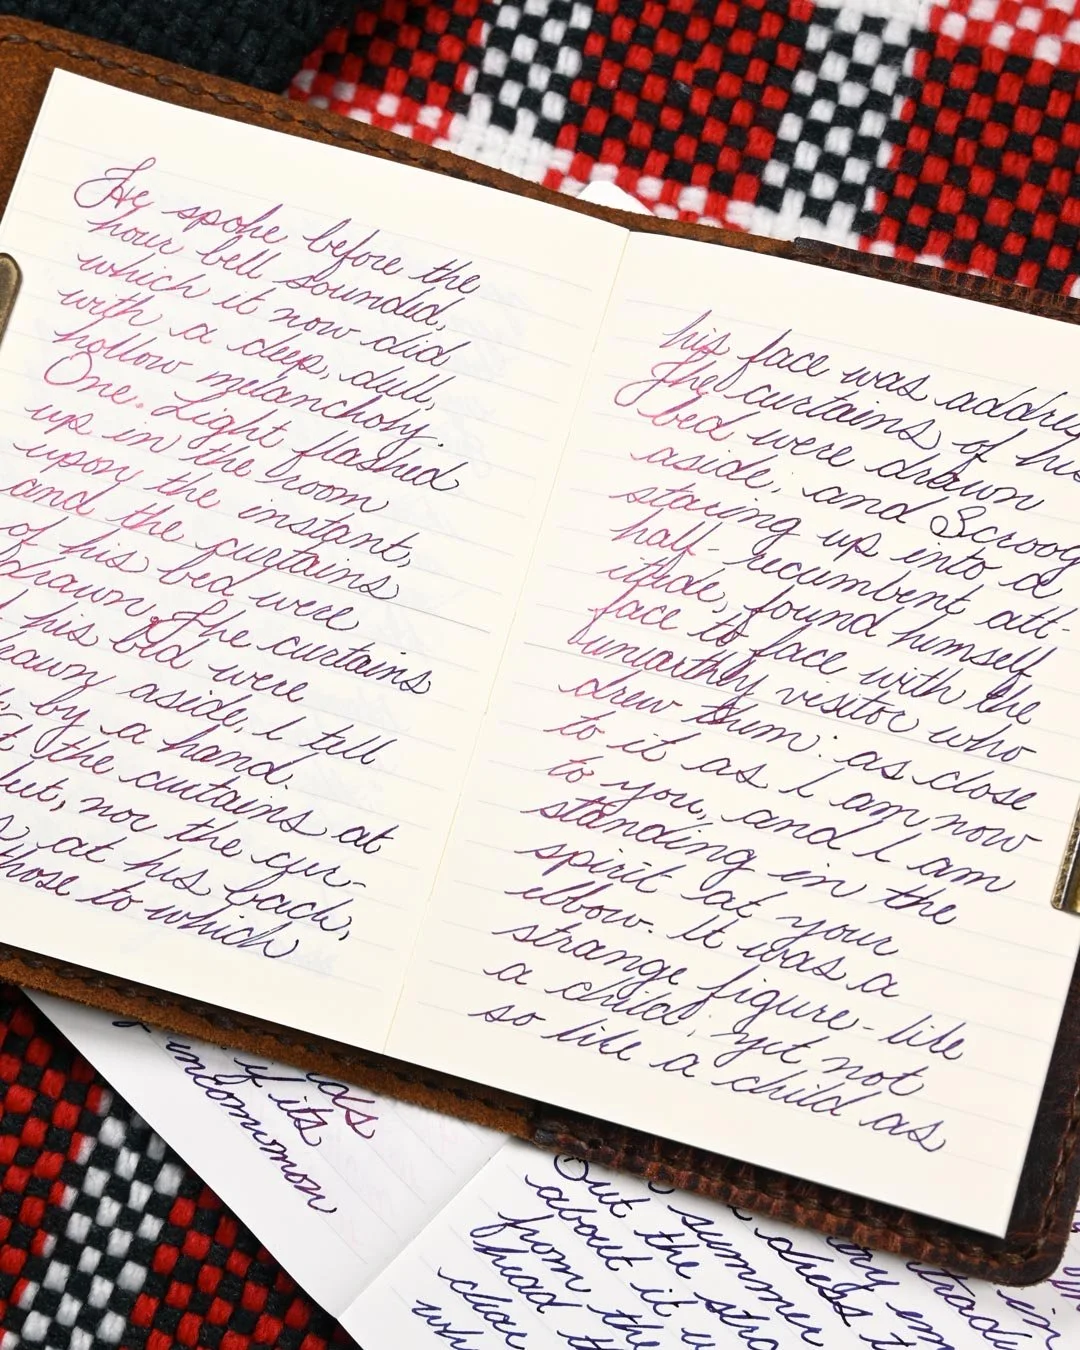 He spoke before the
hour bell sounded,
which it now did
with a deep, dull,
hollow melancholy.
One. Light flashed
up in the room
upon the instant,
and the curtains
of his bed were
drawn. The curtains
his bed were
aside, I tell
by a hand.
the curtains at
nor the cur-
at his back,
those to which
his face was
The curtains of his
bed were drawn
aside, and
staring up into a
half-recumbent att-
itude, found himself
face to face with the
unearthly visitor who
drew them: as close
to it as I am now
to you, and I am
standing in the
spirit at your
elbow. It was a
strange figure-like
a child, yet not
so like a child as
if its
uncommon
Out summer
about the dress
from it
the